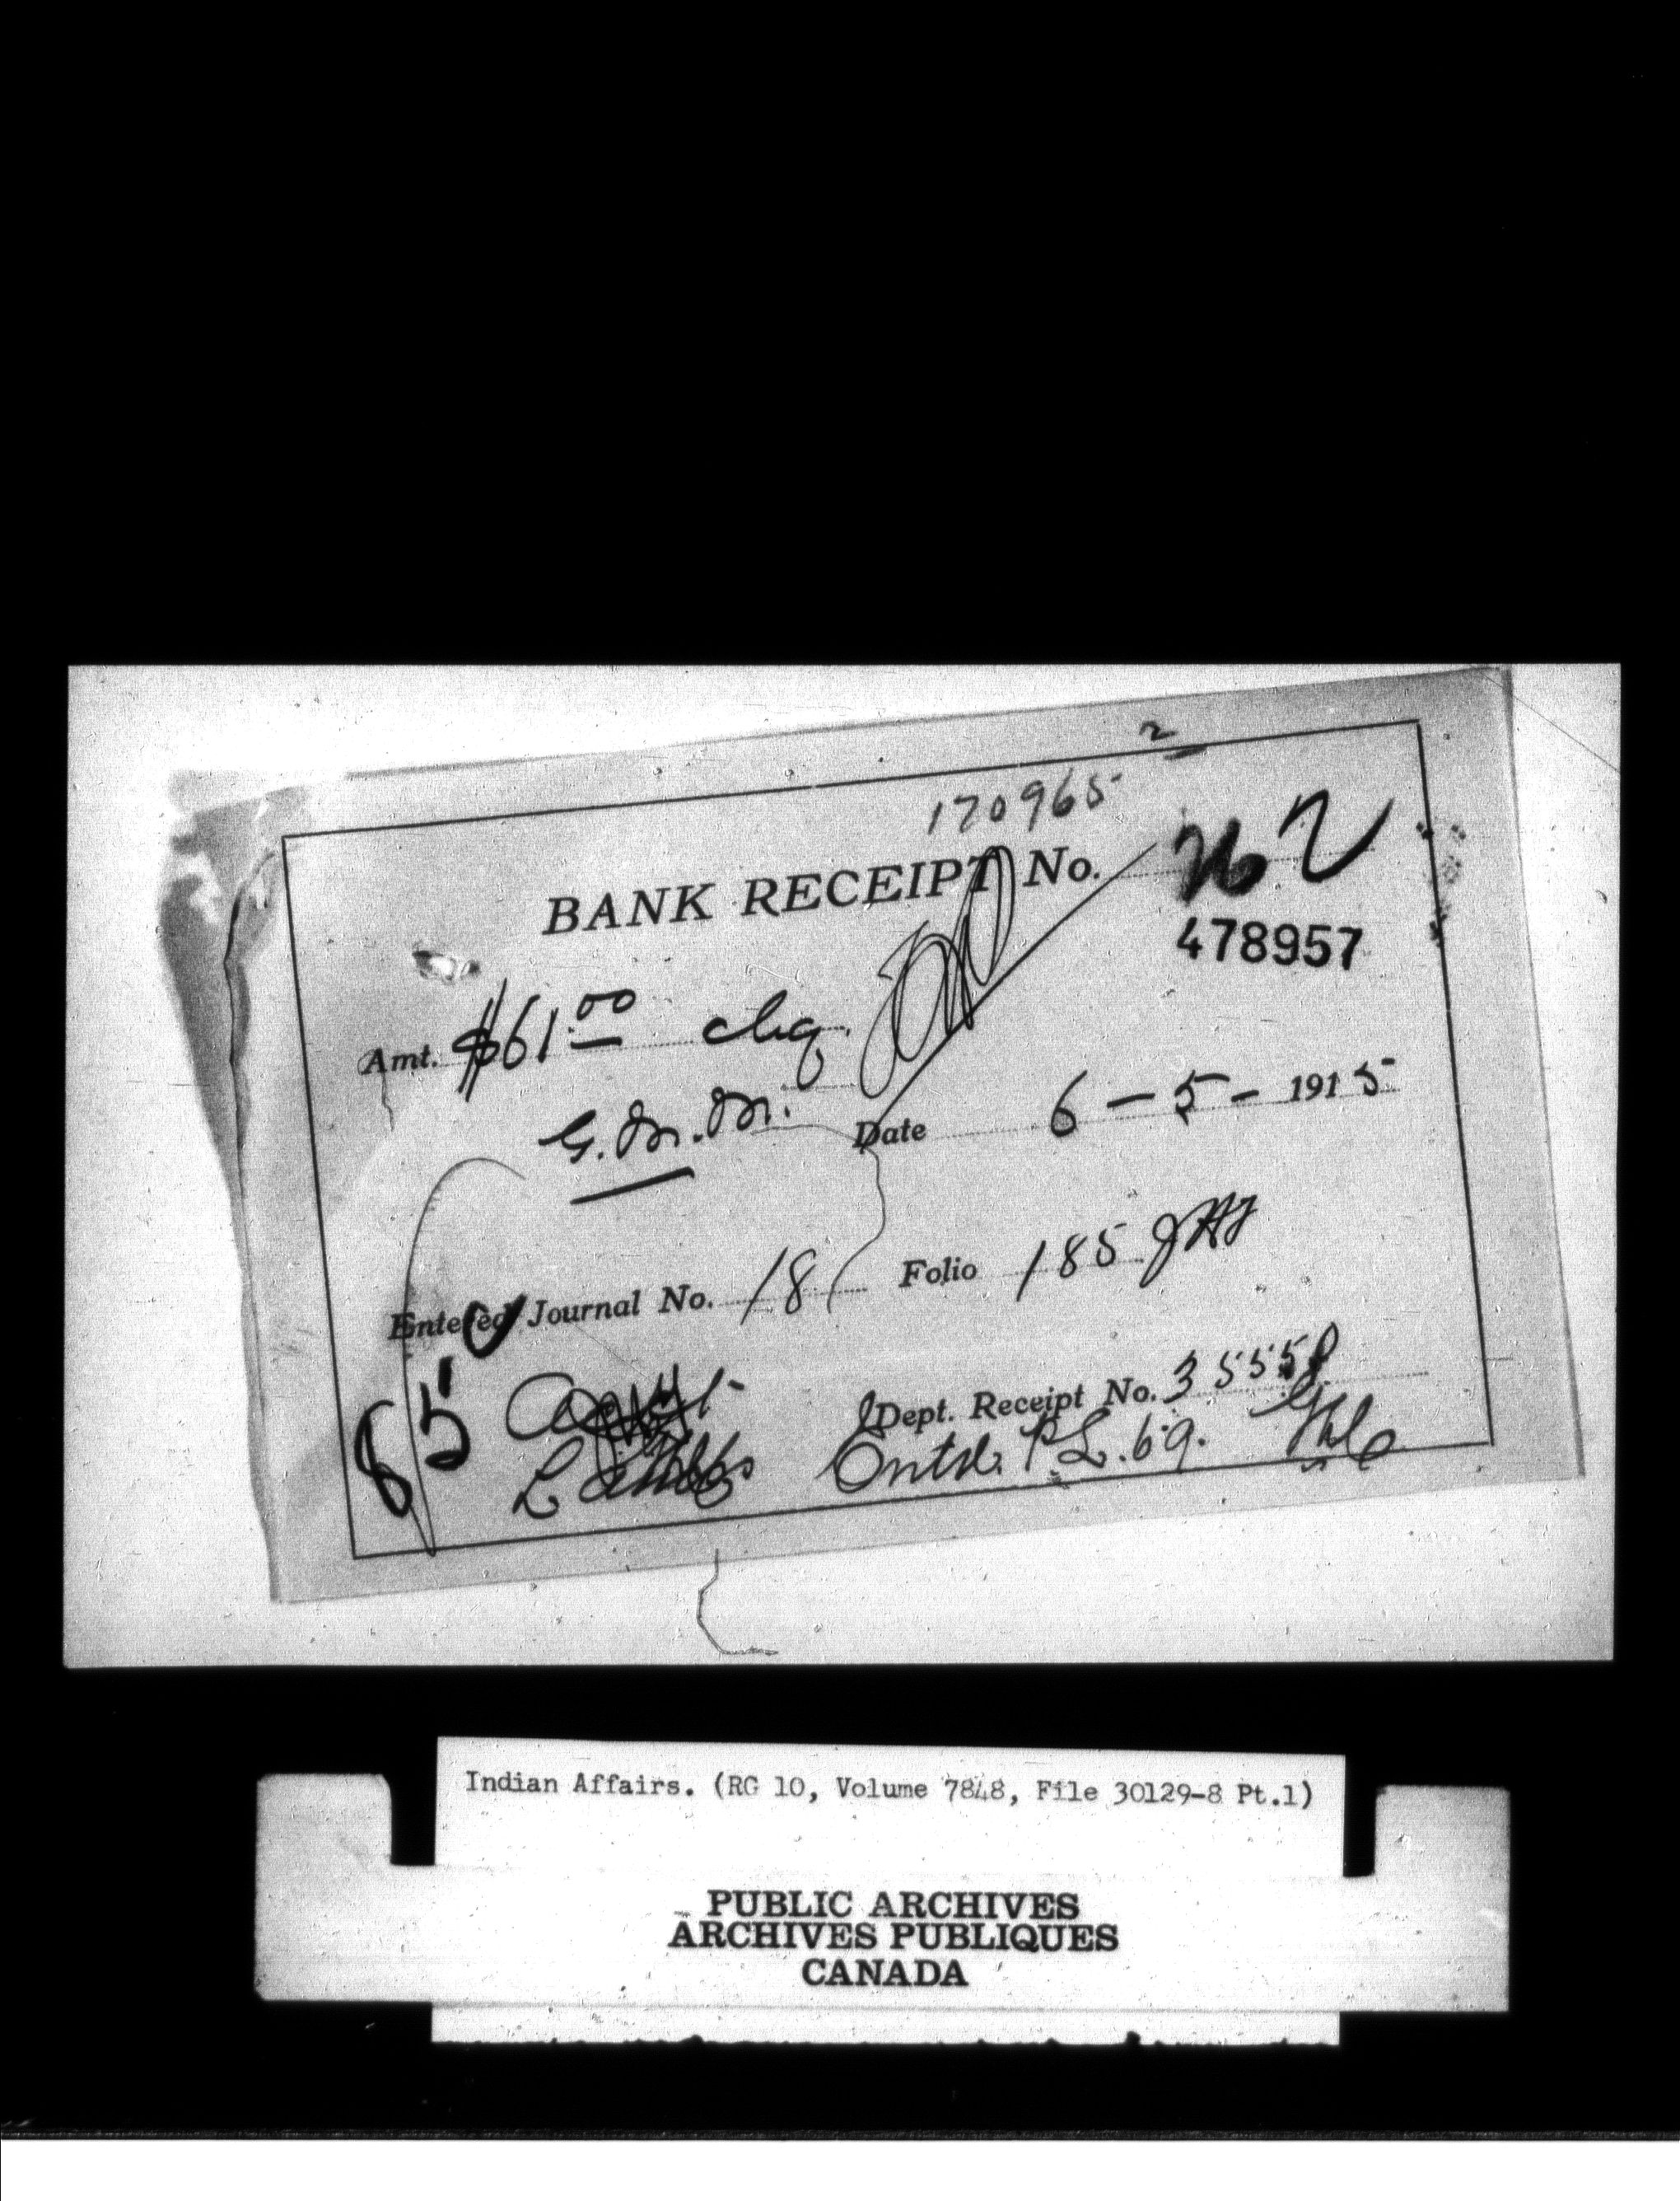 2
170965
BANK RECEIPT No.
478957
Amt. $61.00 chq.
G.M.M.
Date 6 - 5 - 1915
Entered Journal No. 18 Folio 185
85
Dept. Receipt No. 35558
Entd. P.L. 69.
Indian Affairs. (RG 10, Volume 7848, File 30129-8 Pt.1)
PUBLIC ARCHIVES
ARCHIVES PUBLIQUES
CANADA